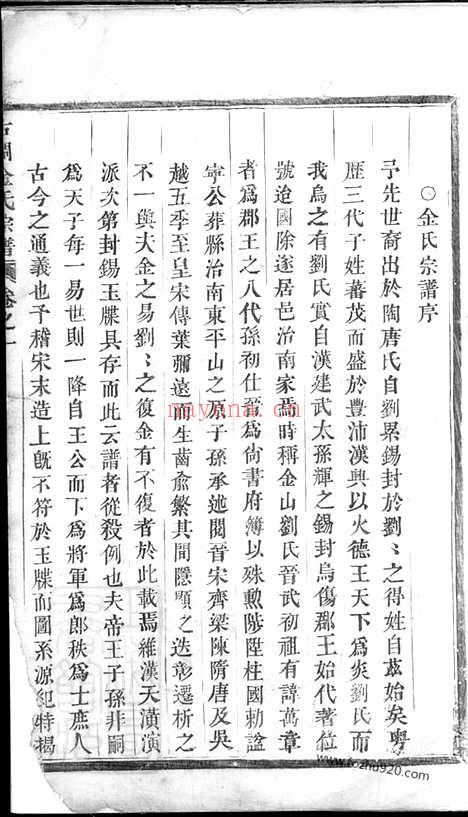 ○金氏宗譜序
予先世裔出於陶唐氏自劉累錫封於劉〻之得姓自茲始矣學
歷三代子姓蕃茂而盛於豐沛漢興以火德王天下為炎劉氏而
我烏之有劉氏實自漢建武太孫輝之錫封烏傷郡王始代著位
號迨國除遂居邑治南家焉時稱金山劉氏晉武初祖有諱萬章
者為郡王之八代孫初仕晉為尚書府簿以殊勲陟陞柱國勅諡
寧公葬縣治南東平山之原子孫承述閱晉宋齊梁陳隋唐及吳
越五季至皇宋傳葉彌遠而生齒愈繁其間隱顯之迭彰遷析之
不一與夫金之易劉〻之復金有不復者於此載焉維漢天潢演
派次第封錫玉牒具存而此云譜者從殺例也夫帝王子孫非嗣
為天子每一易世則一降自王公而下為將軍為郎秩為士庶人
古今之通義也予稽宋末造上旣不符於玉牒而圖系源紀特揭
金氏宗譜 卷之一
mayuna.com
www.fozhu920.com